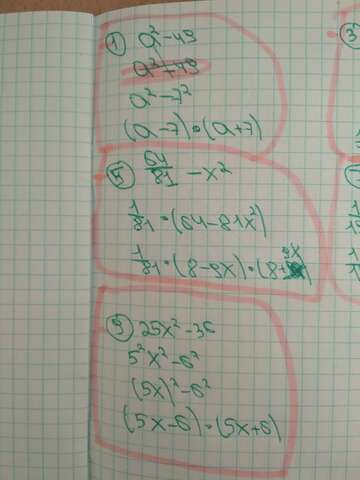 ① a²-49
a²+49
a²-7²
(a-7)•(a+7)
⑤ 64/81 - x²
1/81•(64-81x²)
1/81•(8-9x)•(8+9x)
⑨ 25x²-36
5²x²-6²
(5x)²-6²
(5x-6)•(5x+6)